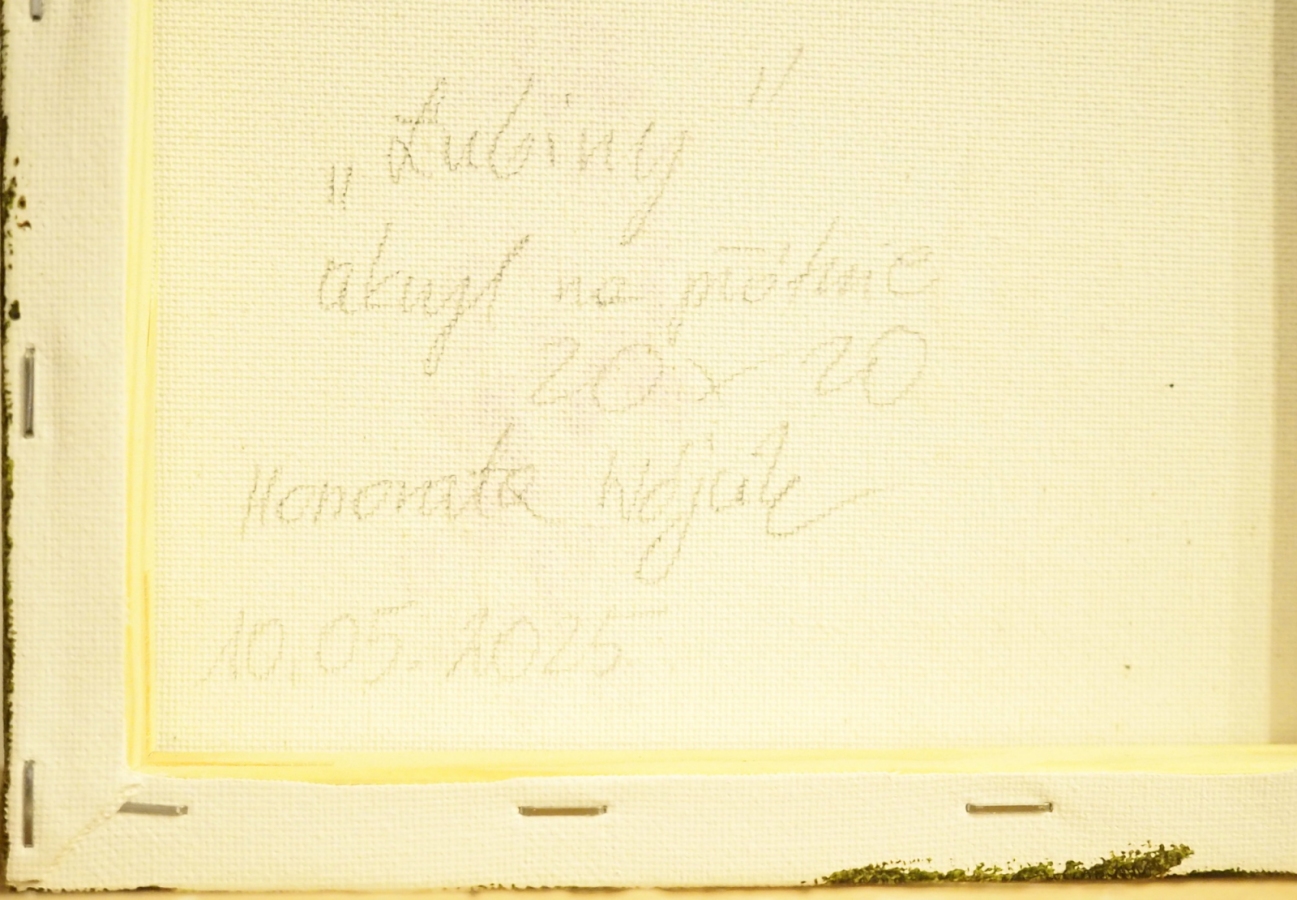 „Łubiny"
akryl na płótnie
20 x 20
Honorata Wójcik
10.05.2025